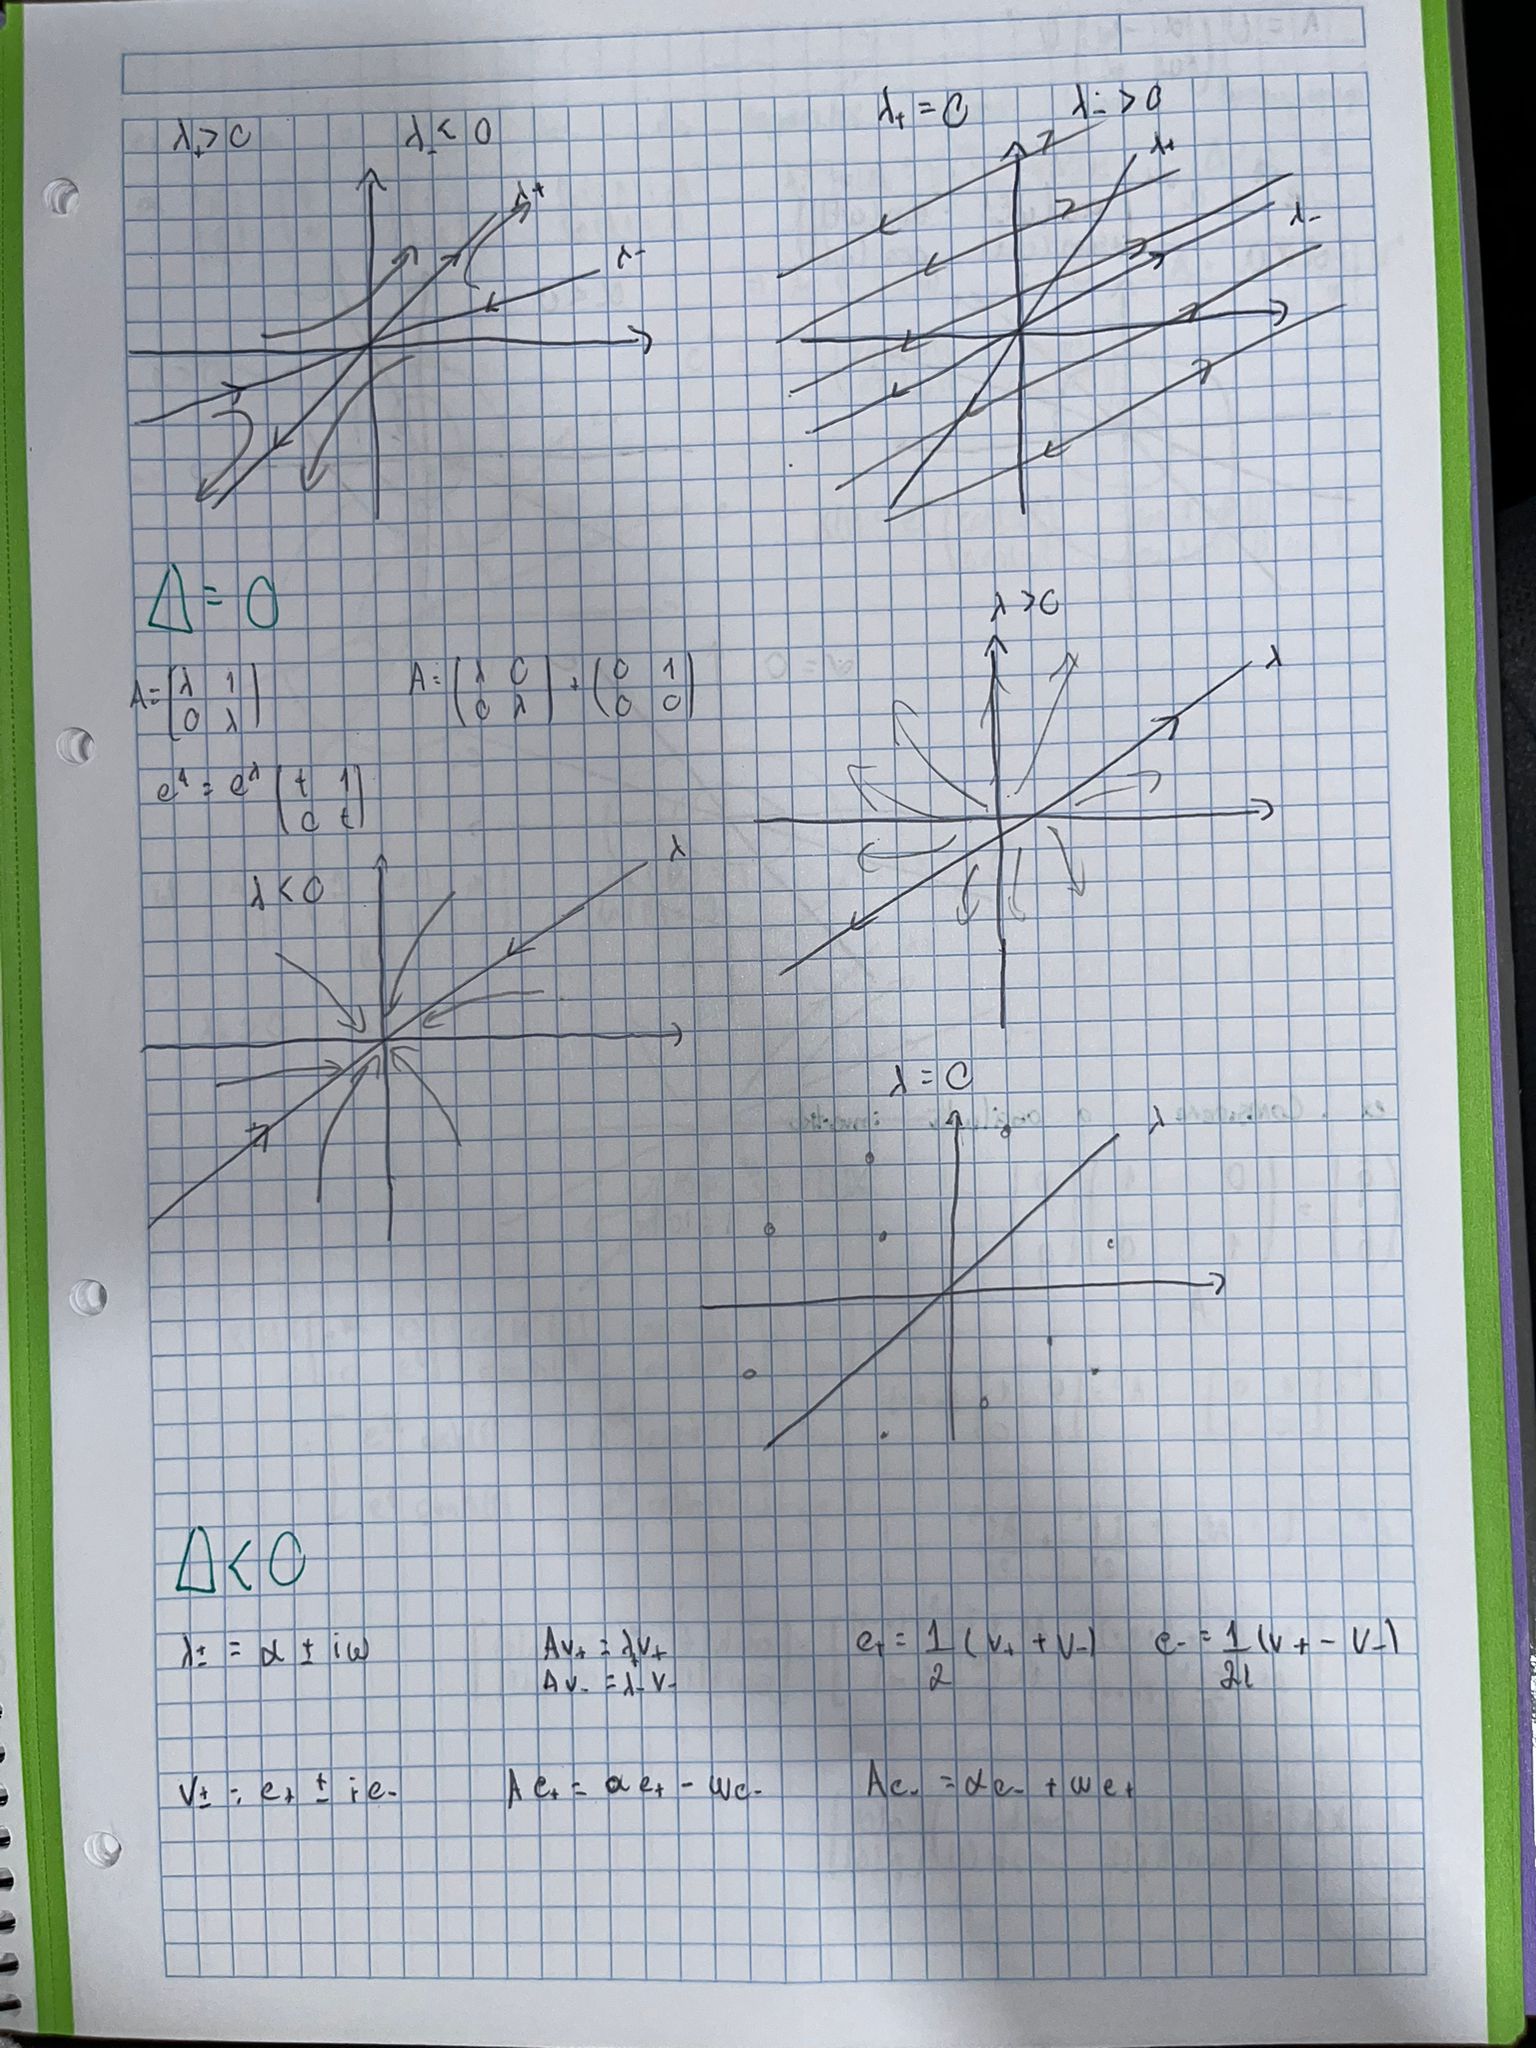 λ₊>0 λ₋<0
λ₊=0 λ₋>0
λ+
λ-
λ+
λ-
Δ=0
A=(λ 1
0 λ)
A=(λ 0
0 λ)+(0 1
0 0)
λ>0
λ
eᴬ = e^λ (t 1
0 t)
λ<0
λ
λ=0
λ
Δ<0
λ± = α ± iω
Av₊ = λ₊v₊
Av₋ = λ₋v₋
e₊ = 1/2 (v₊ + v₋)
e₋ = 1/2i (v₊ - v₋)
v± = e₊ ± ie₋
Ae₊ = αe₊ - ωe₋
Ae₋ = αe₋ + ωe₊